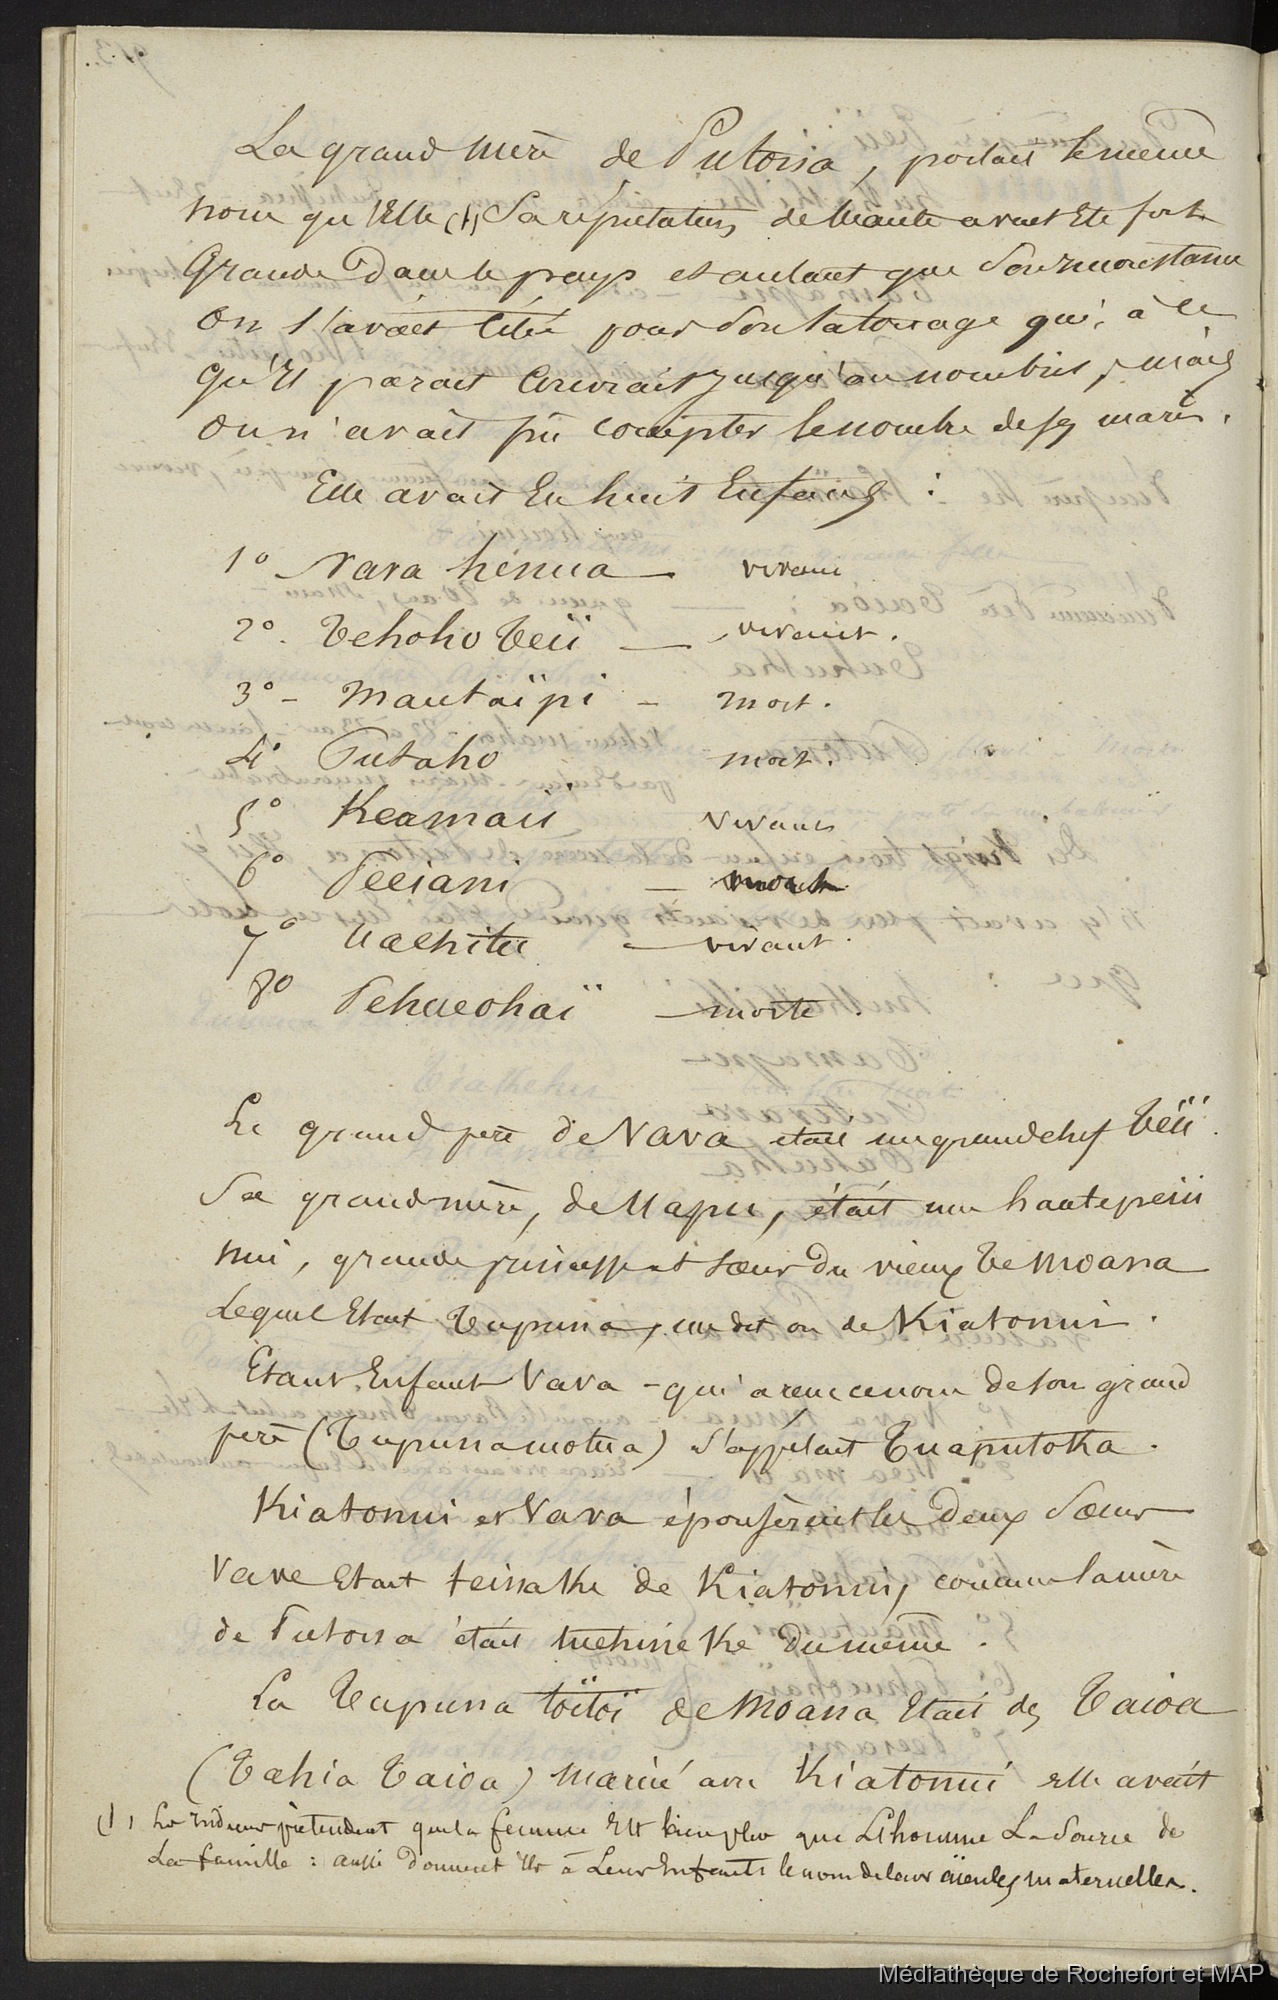 La grand mère de Putona, portait le même
nom qu'Elle (1) Sa réputation de beauté avait Eté fort
Grande dans le pays et autant que
On l'avait Citée pour Son tatouage qui, à ce
qu'Il parait Couvrait jusqu'au nombril, mais
On n'avait pû compter le nombre de ses maris.
Elle avait Eu huit Enfants :
1° Vava henua — vivant
2°. Tehoho Teii — vivant.
3° - Mautaïpi - mort.
4° Putaho mort.
5° Keamaii vivant
6° Peeiani — morte
7° Uaehitu — vivant.
8° Pehueohaï — morte.
Le grand père de Vava etait un grand chef Teïi.
Sa grand mère, de Uapu, était une haatepeiu
nui, grande princesse et soeur du vieux Te Moana
Lequel Etait Tupuna, me dit on de Kiatonui.
Etant Enfant Vava - qui a reçu ce nom de son grand
père (Tupuna motua) s'appelait Tuaputoka.
Kiatonui et Vava épousèrent les deux Soeurs
Vava Etait teinake de Kiatonui, comme la mère
de Putona était tuehine Ke du même.
La Tupuna toïtoï de Moana Etait des Taioa
(Tahia Taioa) Mariée avec Kiatonui elle avait
(1) Les Indiens prétendent que la femme Est bien plus que L'homme La Source de
La famille : aussi Donnent ils à Leurs Enfants le nom de leurs aïeules maternelles.
Médiathèque de Rochefort et MAP